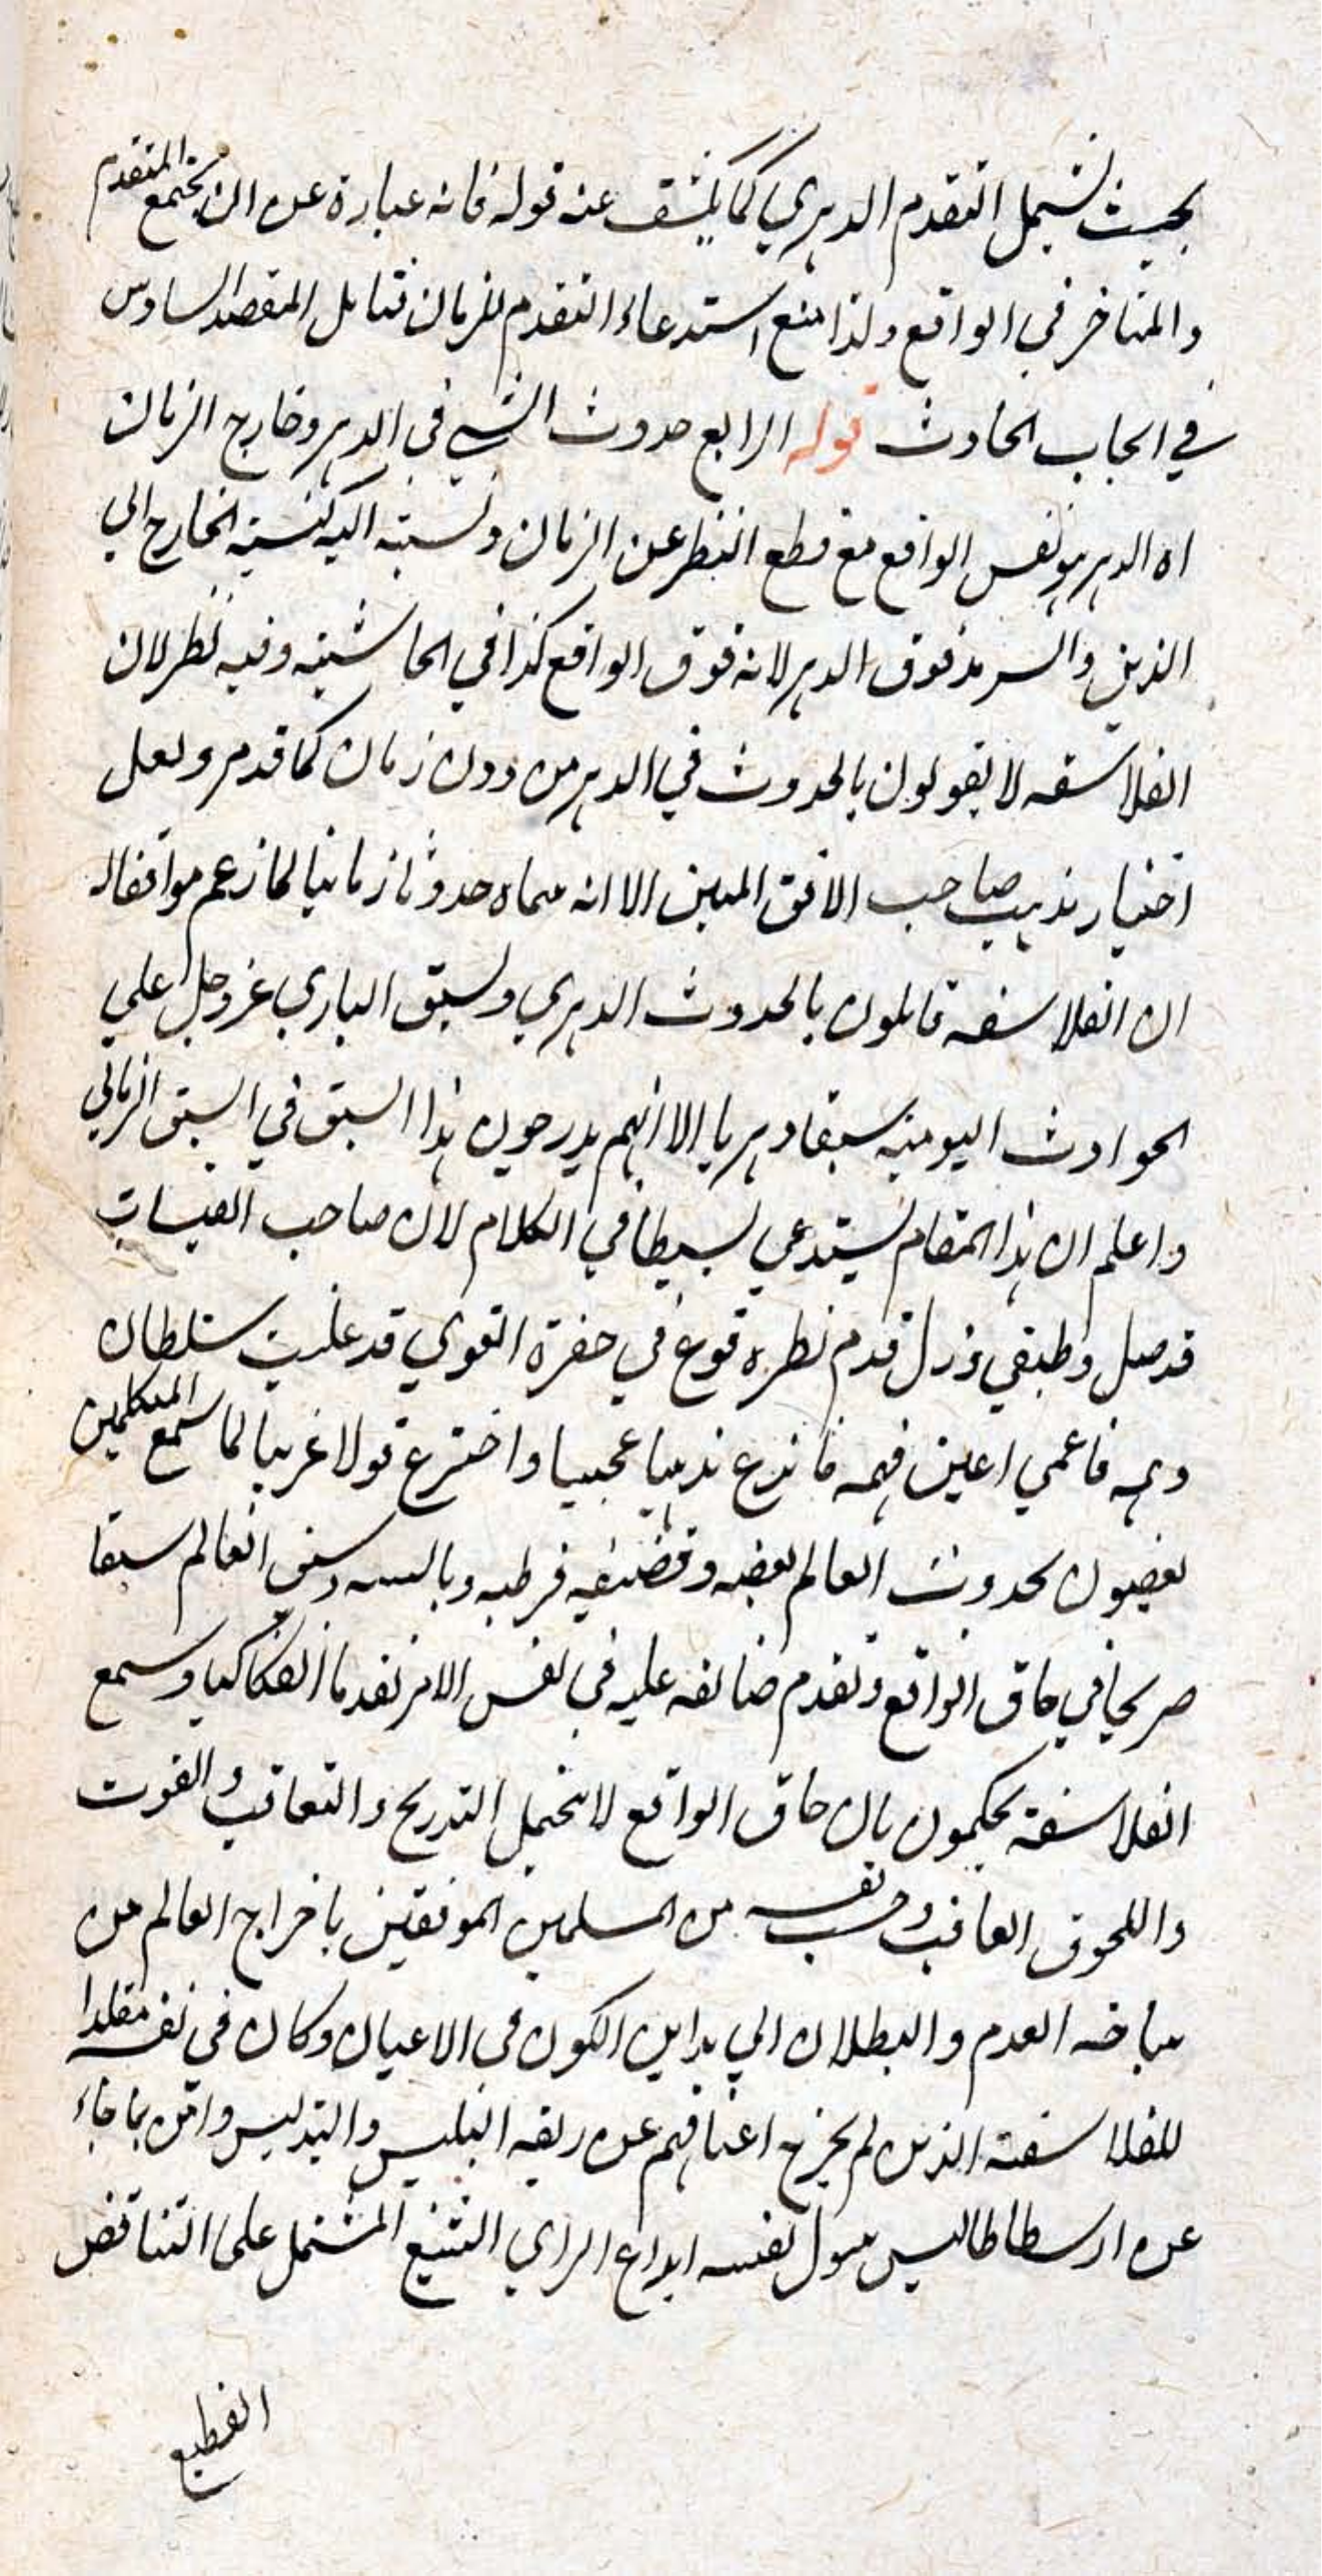 بحيث يشمل التقدم الدهري كما يكشف عنه قوله فانه عبارة عن ان لا يجتمع المتقدم
والمتاخر في الواقع ولذا منع استدعاء التقدم للزمان فتامل المقصد السادس
في ايجاب الحادث قوله الرابع حدوث الشي في الدهر وخارج الزمان
اه الدهر هو نفس الواقع مع قطع النظر عن الزمان ونسبته اليه كنسبة الخارج الي
الذهن والسرمد فوق الدهر لانه فوق الواقع كذا في الحاشية وفيه نظر لان
الفلاسفه لا يقولون بالحدوث في الدهر من دون زمان كما قد مر ولعل
اختيار مذهب صاحب الافق المبين الا انه سماه حدوثا زمانيا لما زعم موافقا له
ان الفلاسفه قائلون بالحدوث الدهري وسبق الباري عز وجل علي
الحوادث اليومية سبقا دهريا الا انهم يدرجون هذا السبق في السبق الزماني
واعلم ان هذا المقام يستدعي بسيطا في الكلام لان صاحب القبسات
قد ضل وزل قدم نظره فوقع في حفرة القوي قد غلبت سلطان
وهمه فاعمي اعين فهمه فابدع مذهبا عجيبا واخترع قولا غريبا لما سمع المتكلمين
يقضون بحدوث العالم وسبق العالم سبقا
صريحا في حاق الواقع وتقدم صانعه عليه في نفس الامر تقدما انفكاكيا وسمع
الفلاسفة يحكمون بان حاق الواقع لا يحتمل التدريج والتعاقب والفوت
واللحوق العاقب وحسب نفسه من المسلمين الموفقين باخراج العالم من
ساحه العدم والبطلان الي الكون في الاعيان وكان في نفسه مقلدا
للفلاسفة الذين لم يخرج اعناقهم عن ربقه التلبيس والتدليس وامن بما جاء
عن ارسطاطاليس سول نفسه ابداع الراي الشنيع المشتمل على التناقض
الفظيع